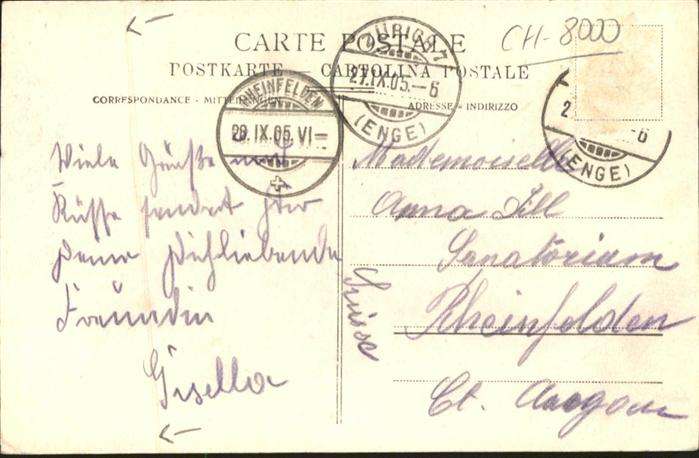 CARTE POSTALE
CH-8000
POSTKARTE — CARTOLINA POSTALE
CORRESPONDANCE - MITTEILUNGEN
ADRESSE - INDIRIZZO
ZÜRICH 1
27.IX.05.-6
(ENGE)
RHEINFELDEN
28.IX.05.VI
2
-6
(ENGE)
Viele Grüße und
Küsse sendet Ihr
Deine Dichliebende
Freundin
Gisella
Mademoiselle
Anna Ill
Sanatorium
Rheinfelden
Ct. Aargau
Suisse